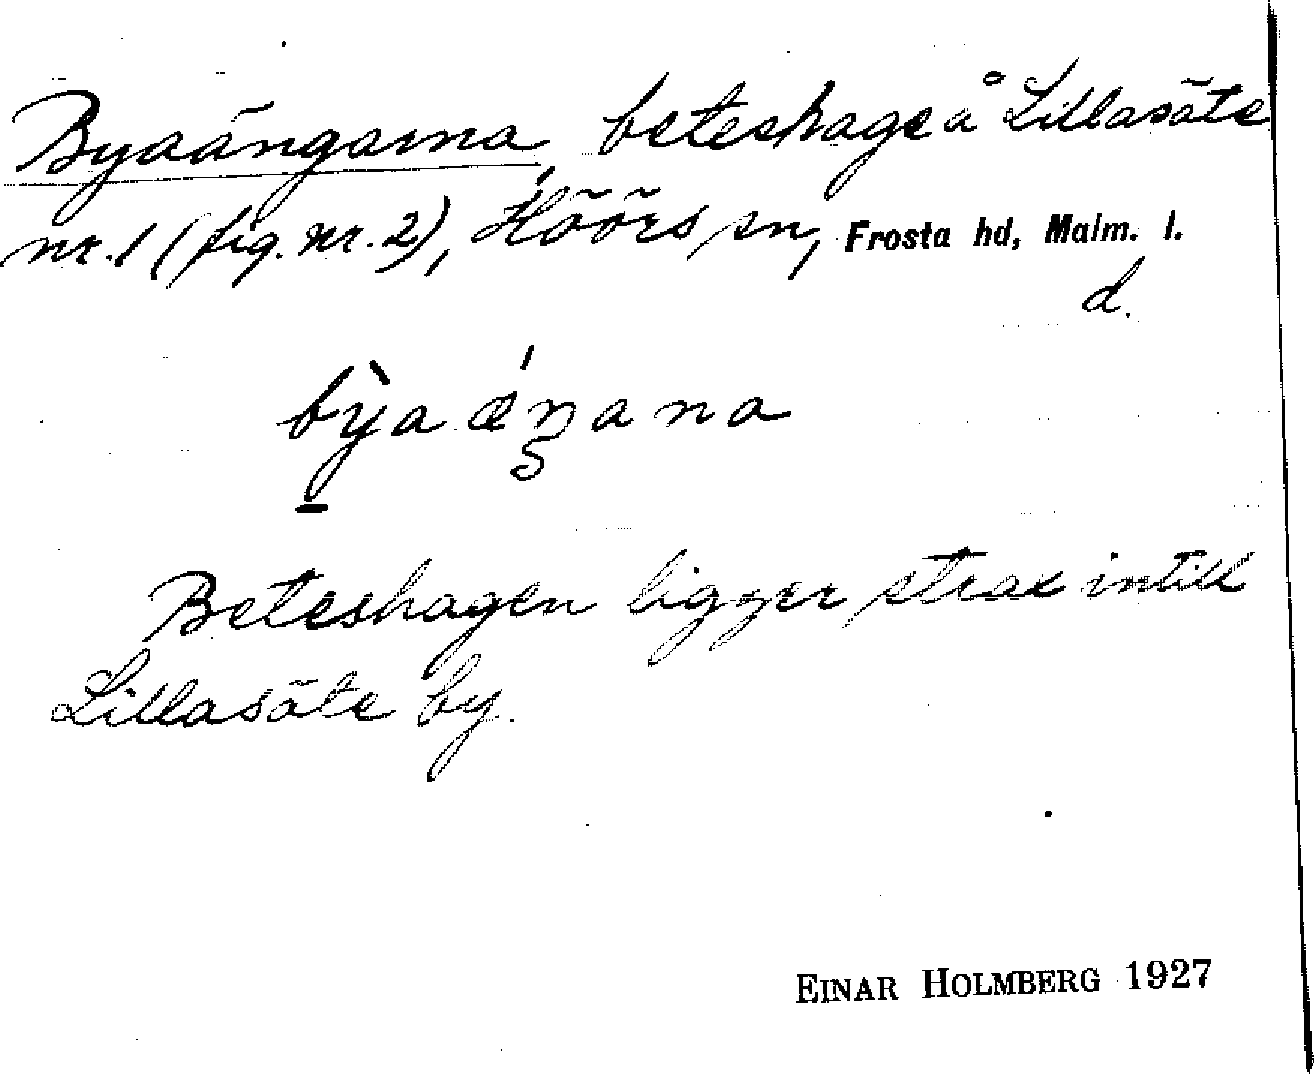 Byaängarna, beteshage å Lillasäte
nr. 1 (fig. nr. 2), Höörs sn, Frosta hd, Malm. l.
d.
bỳa ǽŋana
Beteshagen ligger strax intill
Lillasäte by.
EINAR HOLMBERG 1927